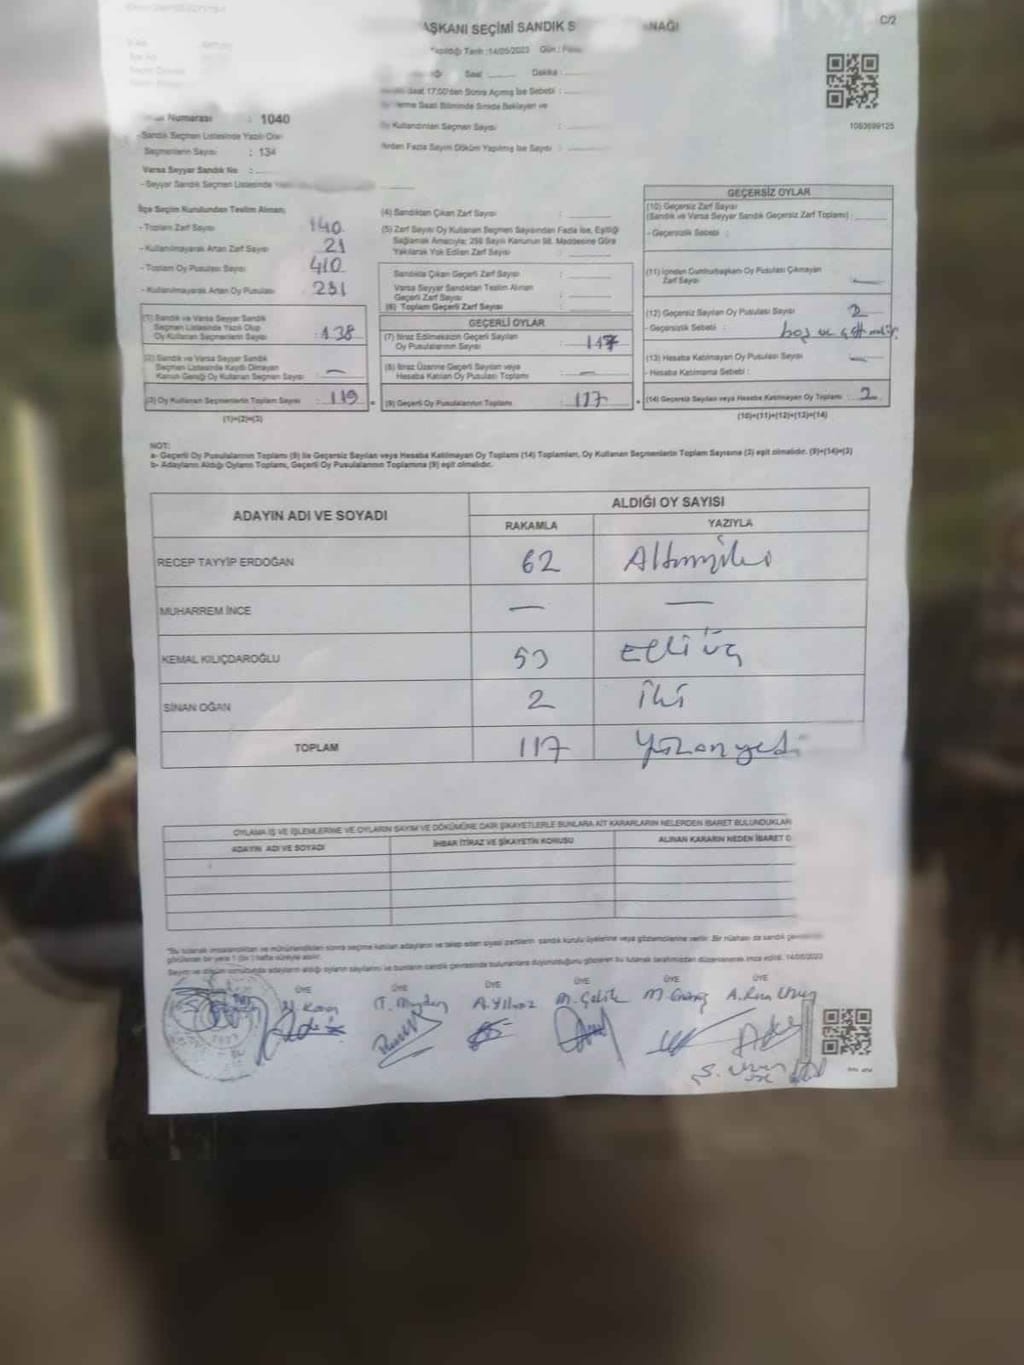 AŞKANI SEÇİMİ SANDIK S NAĞI
C/2
Yapıldığı Tarih :14/05/2023 Gün :
Saat Dakika :
Saat 17:00'den Sonra Açmış İse Sebebi :
erme Saati Bitiminde Sırada Bekleyen ve
Kullandırılan Seçmen Sayısı :
rdan Fazla Sayım Döküm Yapılmış İse Sayısı :
1083699125
Numarası : 1040
-Sandık Seçmen Listesinde Yazılı Olan
Seçmenlerin Sayısı : 134
Varsa Seyyar Sandık No :
- Seyyar Sandık Seçmen Listesinde
İlçe Seçim Kurulundan Teslim Alınan;
- Toplam Zarf Sayısı 140
- Kullanılmayarak Artan Zarf Sayısı 21
- Toplam Oy Pusulası Sayısı 410
- Kullanılmayarak Artan Oy Pusulası : 231
(1) Sandık ve Varsa Seyyar Sandık
Seçmen Listesinde Yazılı Olup
Oy Kullanan Seçmenlerin Sayısı : 138
(2) Sandık ve Varsa Seyyar Sandık
Seçmen Listesinde Kaydı Olmayan
Kanun Gereği Oy Kullanan Seçmen Sayısı : —
(3) Oy Kullanan Seçmenlerin Toplam Sayısı : 119
(1)+(2)=(3)
(4) Sandıktan Çıkan Zarf Sayısı :
(5) Zarf Sayısı Oy Kullanan Seçmen Sayısından Fazla İse, Eşitliği
Sağlamak Amacıyla; 298 Sayılı Kanunun 98. Maddesine Göre
Yakılarak Yok Edilen Zarf Sayısı :
Sandıkta Çıkan Geçerli Zarf Sayısı :
Varsa Seyyar Sandıktan Teslim Alınan
Geçerli Zarf Sayısı :
(6) Toplam Geçerli Zarf Sayısı :
GEÇERLİ OYLAR
(7) İtiraz Edilmeksizin Geçerli Sayılan
Oy Pusulalarının Sayısı : 117
(8) İtiraz Üzerine Geçerli Sayılan veya
Hesaba Katılan Oy Pusulası Toplamı : —
(9) Geçerli Oy Pusulalarının Toplamı : 117
GEÇERSİZ OYLAR
(10) Geçersiz Zarf Sayısı
(Sandık ve Varsa Seyyar Sandık Geçersiz Zarf Toplamı) :
- Geçersizlik Sebebi :
(11) İçinden Cumhurbaşkanı Oy Pusulası Çıkmayan
Zarf Sayısı : —
(12) Geçersiz Sayılan Oy Pusulası Sayısı : 2
- Geçersizlik Sebebi : boş ve çift
(13) Hesaba Katılmayan Oy Pusulası Sayısı : —
- Hesaba Katılmama Sebebi :
(14) Geçersiz Sayılan veya Hesaba Katılmayan Oy Toplamı : 2
(10)+(11)+(12)+(13)=(14)
NOT:
a- Geçerli Oy Pusulalarının Toplamı (9) ile Geçersiz Sayılan veya Hesaba Katılmayan Oy Toplamı (14) Toplamları, Oy Kullanan Seçmenlerin Toplam Sayısına (3) eşit olmalıdır. (9)+(14)=(3)
b- Adayların Aldığı Oyların Toplamı, Geçerli Oy Pusulalarının Toplamına (9) eşit olmalıdır.
ADAYIN ADI VE SOYADI
ALDIĞI OY SAYISI
RAKAMLA YAZIYLA
RECEP TAYYİP ERDOĞAN 62 Altmışiki
MUHARREM İNCE — —
KEMAL KILIÇDAROĞLU 53 Elli üç
SİNAN OĞAN 2 iki
TOPLAM 117 Yüzonyedi
OYLAMA İŞ VE İŞLEMLERİNE VE OYLARIN SAYIM VE DÖKÜMÜNE DAİR ŞİKAYETLERLE BUNLARA AİT KARARLARIN NELERDEN İBARET BULUNDUKLARI
ADAYIN ADI VE SOYADI İHBAR İTİRAZ VE ŞİKAYETİN KONUSU ALINAN KARARIN NEDEN İBARET O
"Bu tutanak imzalandıktan ve mühürlendikten sonra seçime katılan adayların ve talep eden siyasi partilerin sandık kurulu üyelerine veya gözlemcilerine verilir. Bir nüshası da sandık çevresinde
görülecek bir yere 1 (bir) hafta süreyle asılır.
Sayım ve döküm sonucunda adayların aldığı oyların sayılarını ve bunların sandık çevresinde bulunanlara duyurulduğunu gösteren bu tutanak tarafımızdan düzenlenerek imza edildi. 14/05/2023
ÜYE ÜYE ÜYE ÜYE ÜYE ÜYE
A. Yılmaz M. Çelik